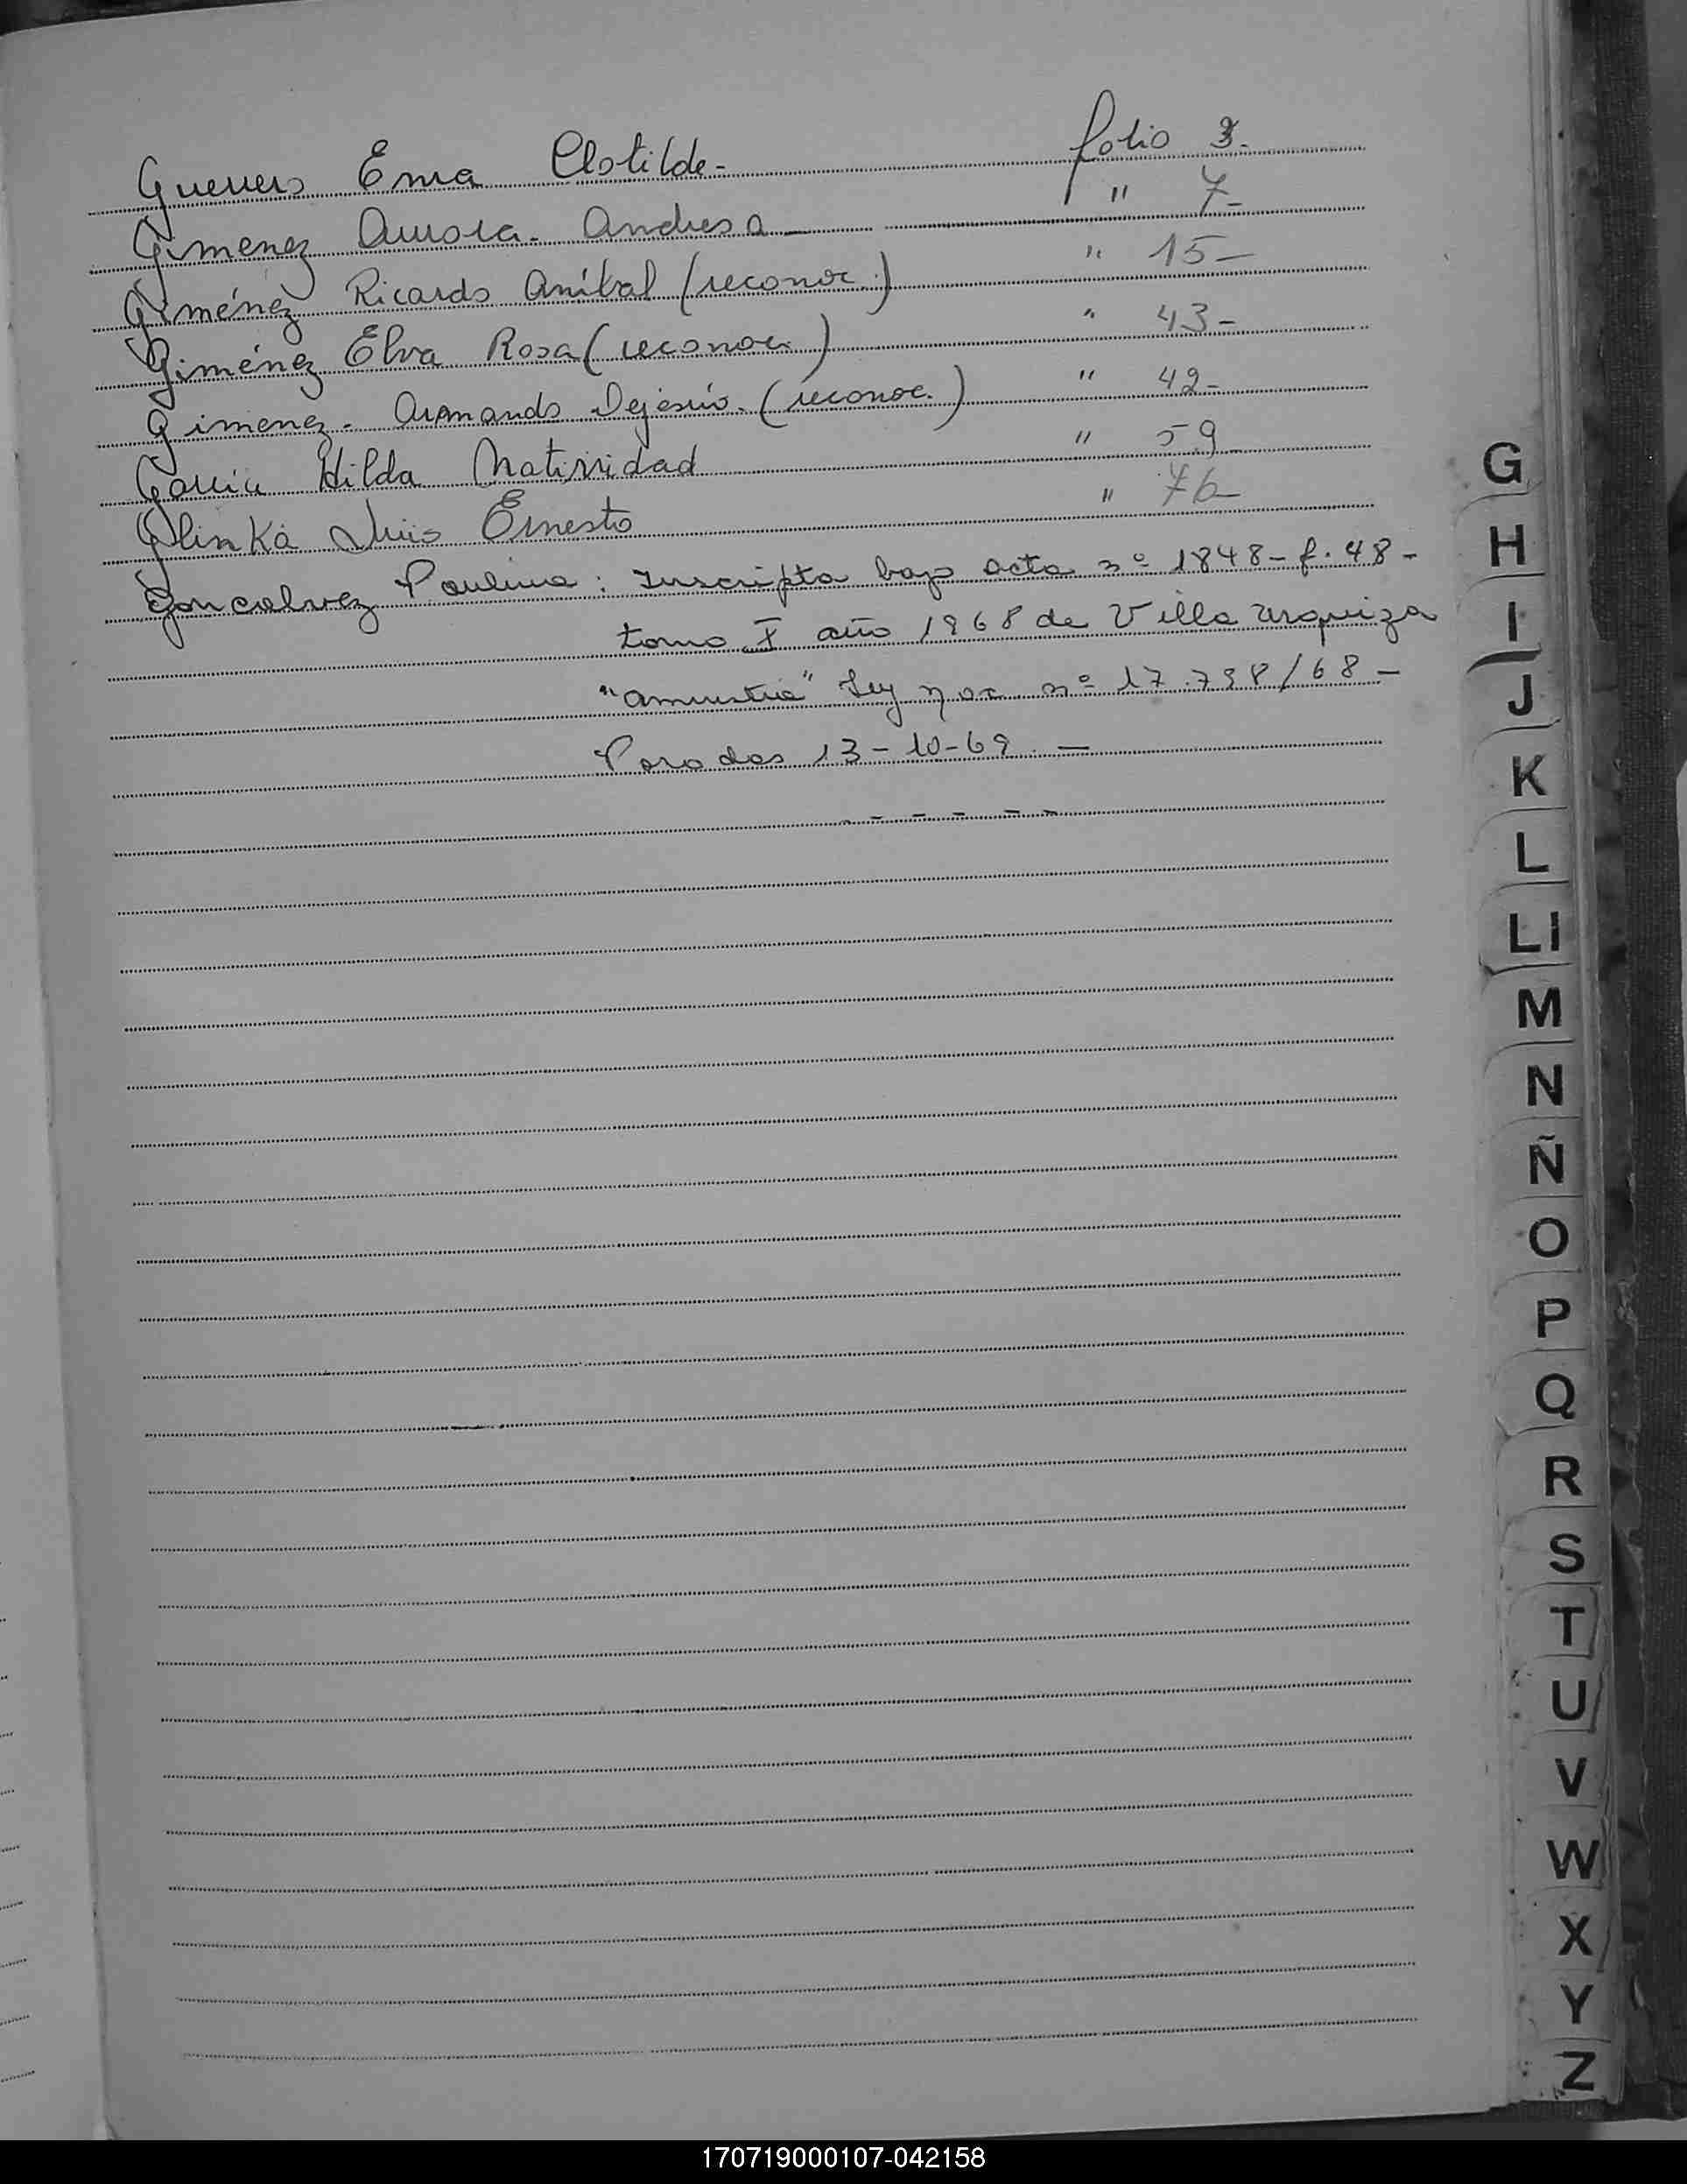 Guerrero Ema Clotilde - folio 3.
Gimenez Aurora. Andresa — " 7-
Giménez Ricardo Aníbal (reconoc.) " 15-
Giménez Elva Rosa (reconoc.) " 43-
Gimenez. Armando Dejesús. (reconoc.) " 42-
García Hilda Natividad " 59
Glinka Luis Ernesto " 76-
Goncalvez Paulina: Inscripta bajo acta nº 1848- f. 48-
tomo X año 1968 de Villa Urquiza
"amnistia" Ley nac nº 17.798/68 -
Posadas 13-10-69. —
G
H
I
J
K
L
Ll
M
N
Ñ
O
P
Q
R
S
T
U
V
W
X
Y
Z
170719000107-042158